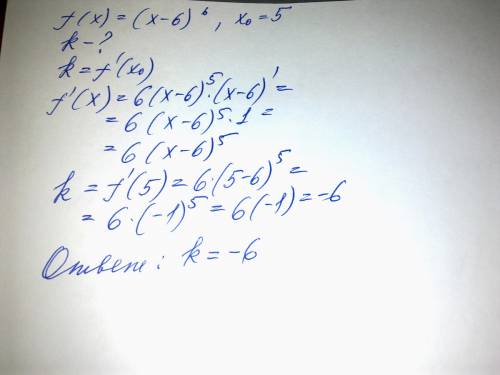 f(x) = (x-6)⁶, x₀ = 5
k - ?
k = f'(x₀)
f'(x) = 6(x-6)⁵·(x-6)' =
= 6(x-6)⁵·1 =
= 6(x-6)⁵
k = f'(5) = 6·(5-6)⁵ =
= 6·(-1)⁵ = 6(-1) = -6
Ответ: k = -6